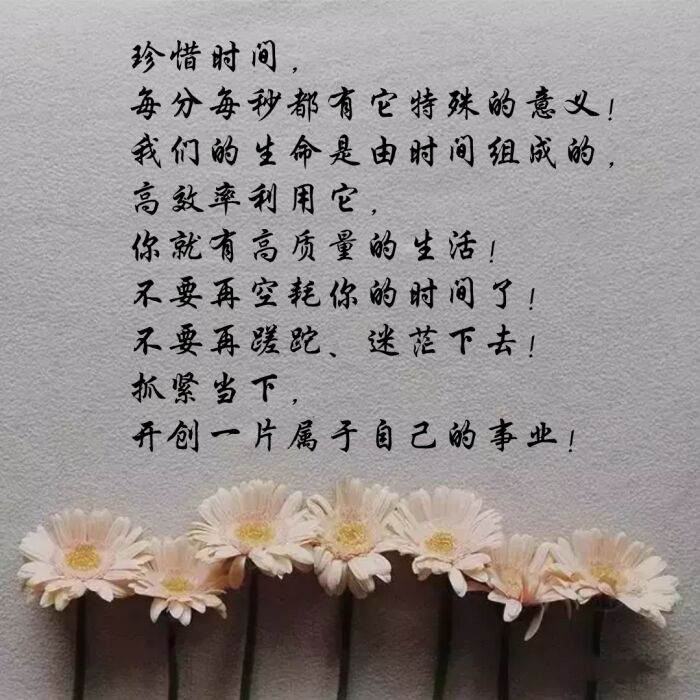 珍惜时间，
每分每秒都有它特殊的意义！
我们的生命是由时间组成的，
高效率利用它，
你就有高质量的生活！
不要再空耗你的时间了！
不要再蹉跎、迷茫下去！
抓紧当下，
开创一片属于自己的事业！